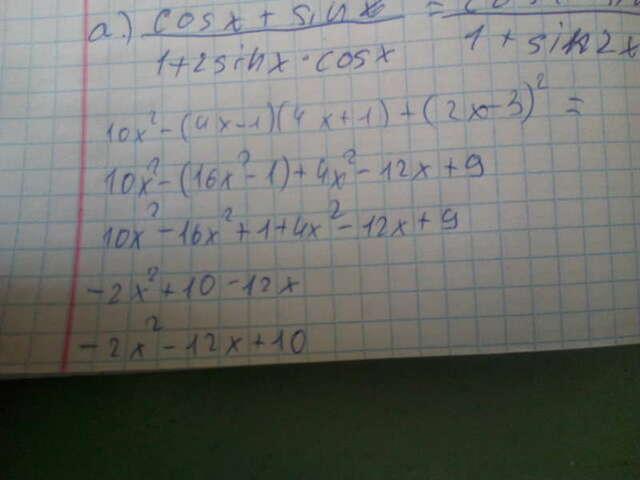 a.) cosx + sinx =
1+2sinx·cosx 1 + sin2x
10x² - (4x-1)(4x+1) + (2x-3)² =
10x² - (16x² - 1) + 4x² - 12x + 9
10x² - 16x² + 1 + 4x² - 12x + 9
-2x² + 10 - 12x
-2x² - 12x + 10